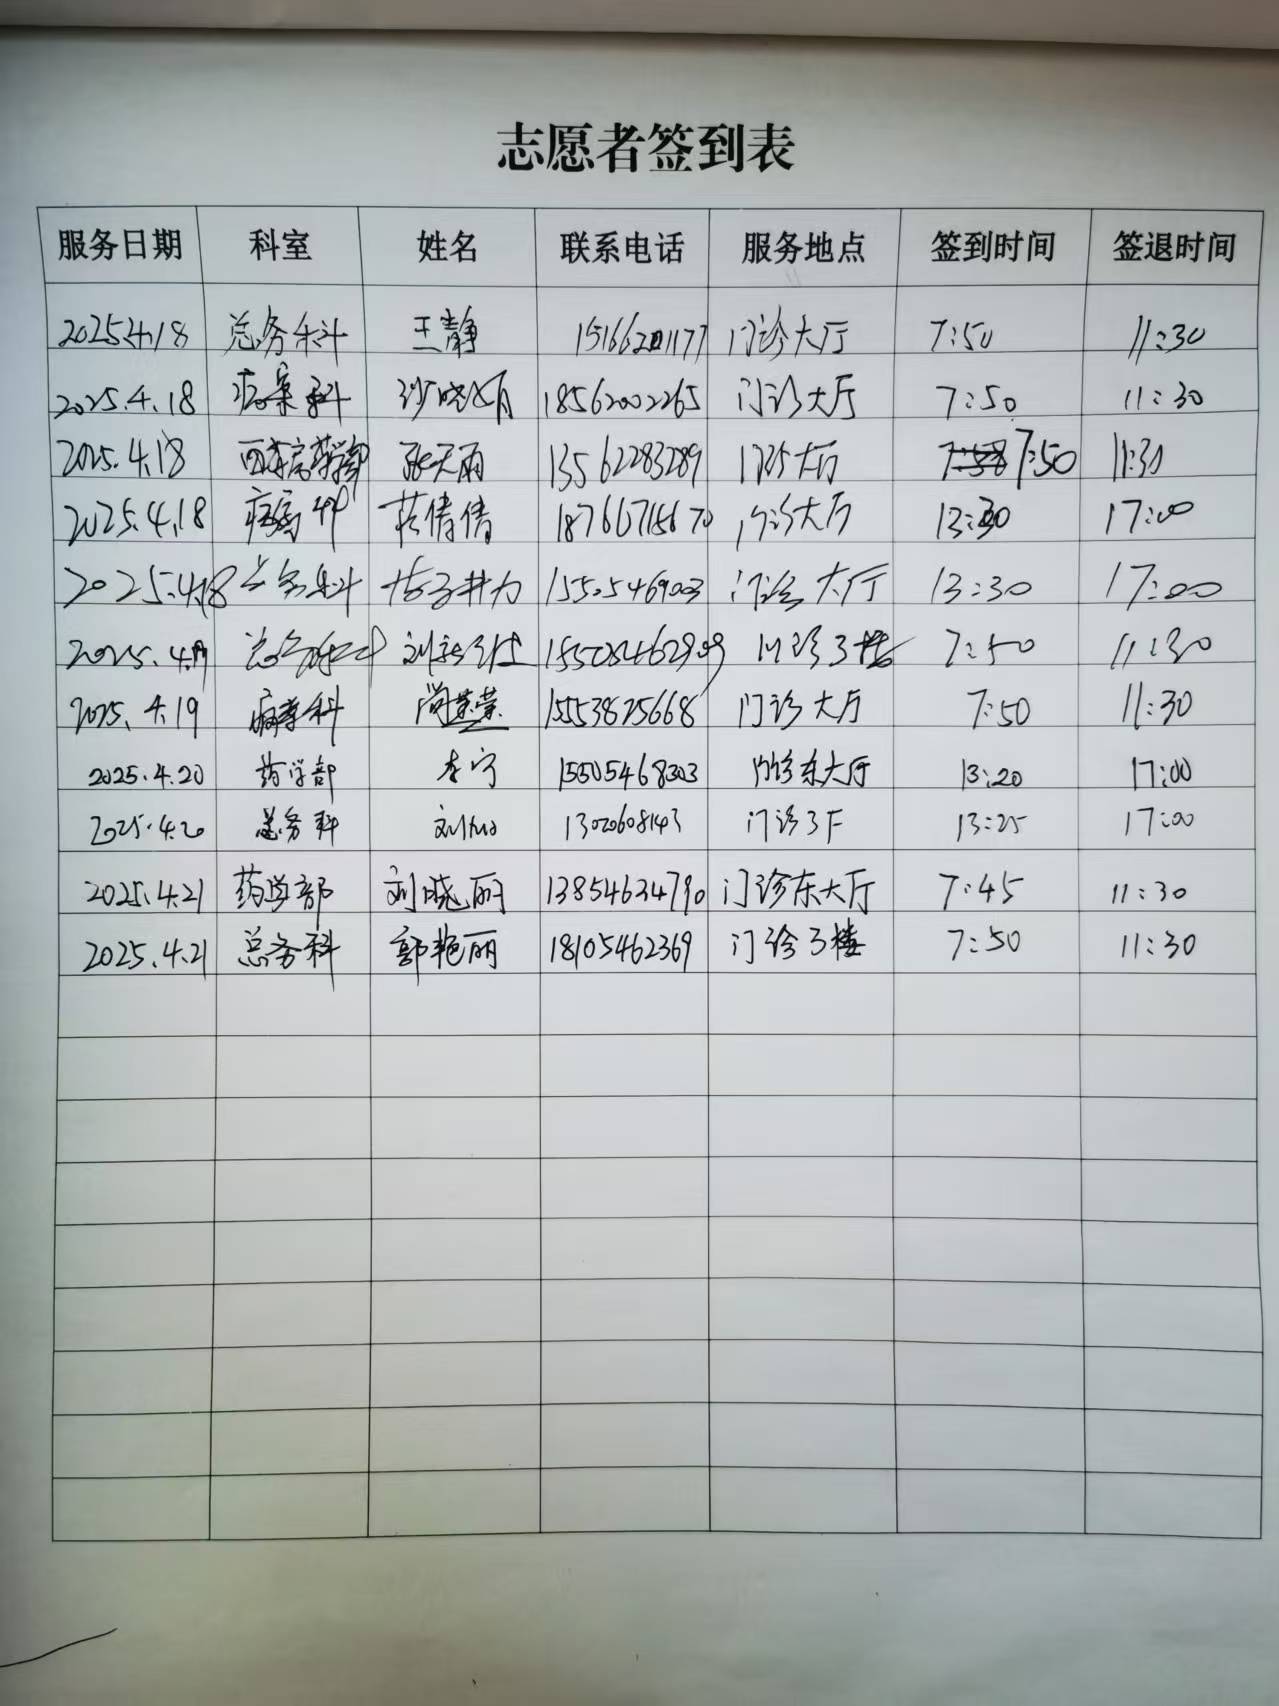 志愿者签到表
服务日期 科室 姓名 联系电话 服务地点 签到时间 签退时间
2025.4.18 总务科 王静 门诊大厅 7:50 11:30
2025.4.18 病案科 18562002265 门诊大厅 7:50 11:30
2025.4.18 张天雨 13562283289 门诊大厅 7:50 11:30
2025.4.18 倩倩 18766715670 门诊大厅 13:30 17:00
2025.4.18 总务科 15505469003 门诊大厅 13:30 17:00
2025.4.19 总务科 门诊3楼 7:50 11:30
2025.4.19 病案科 15553825668 门诊大厅 7:50 11:30
2025.4.20 药学部 李宁 15505468303 门诊东大厅 13:20 17:00
2025.4.20 总务科 13020608143 门诊3F 13:25 17:00
2025.4.21 药学部 刘晓丽 13854634790 门诊东大厅 7:45 11:30
2025.4.21 总务科 郭艳丽 18105462369 门诊3楼 7:50 11:30